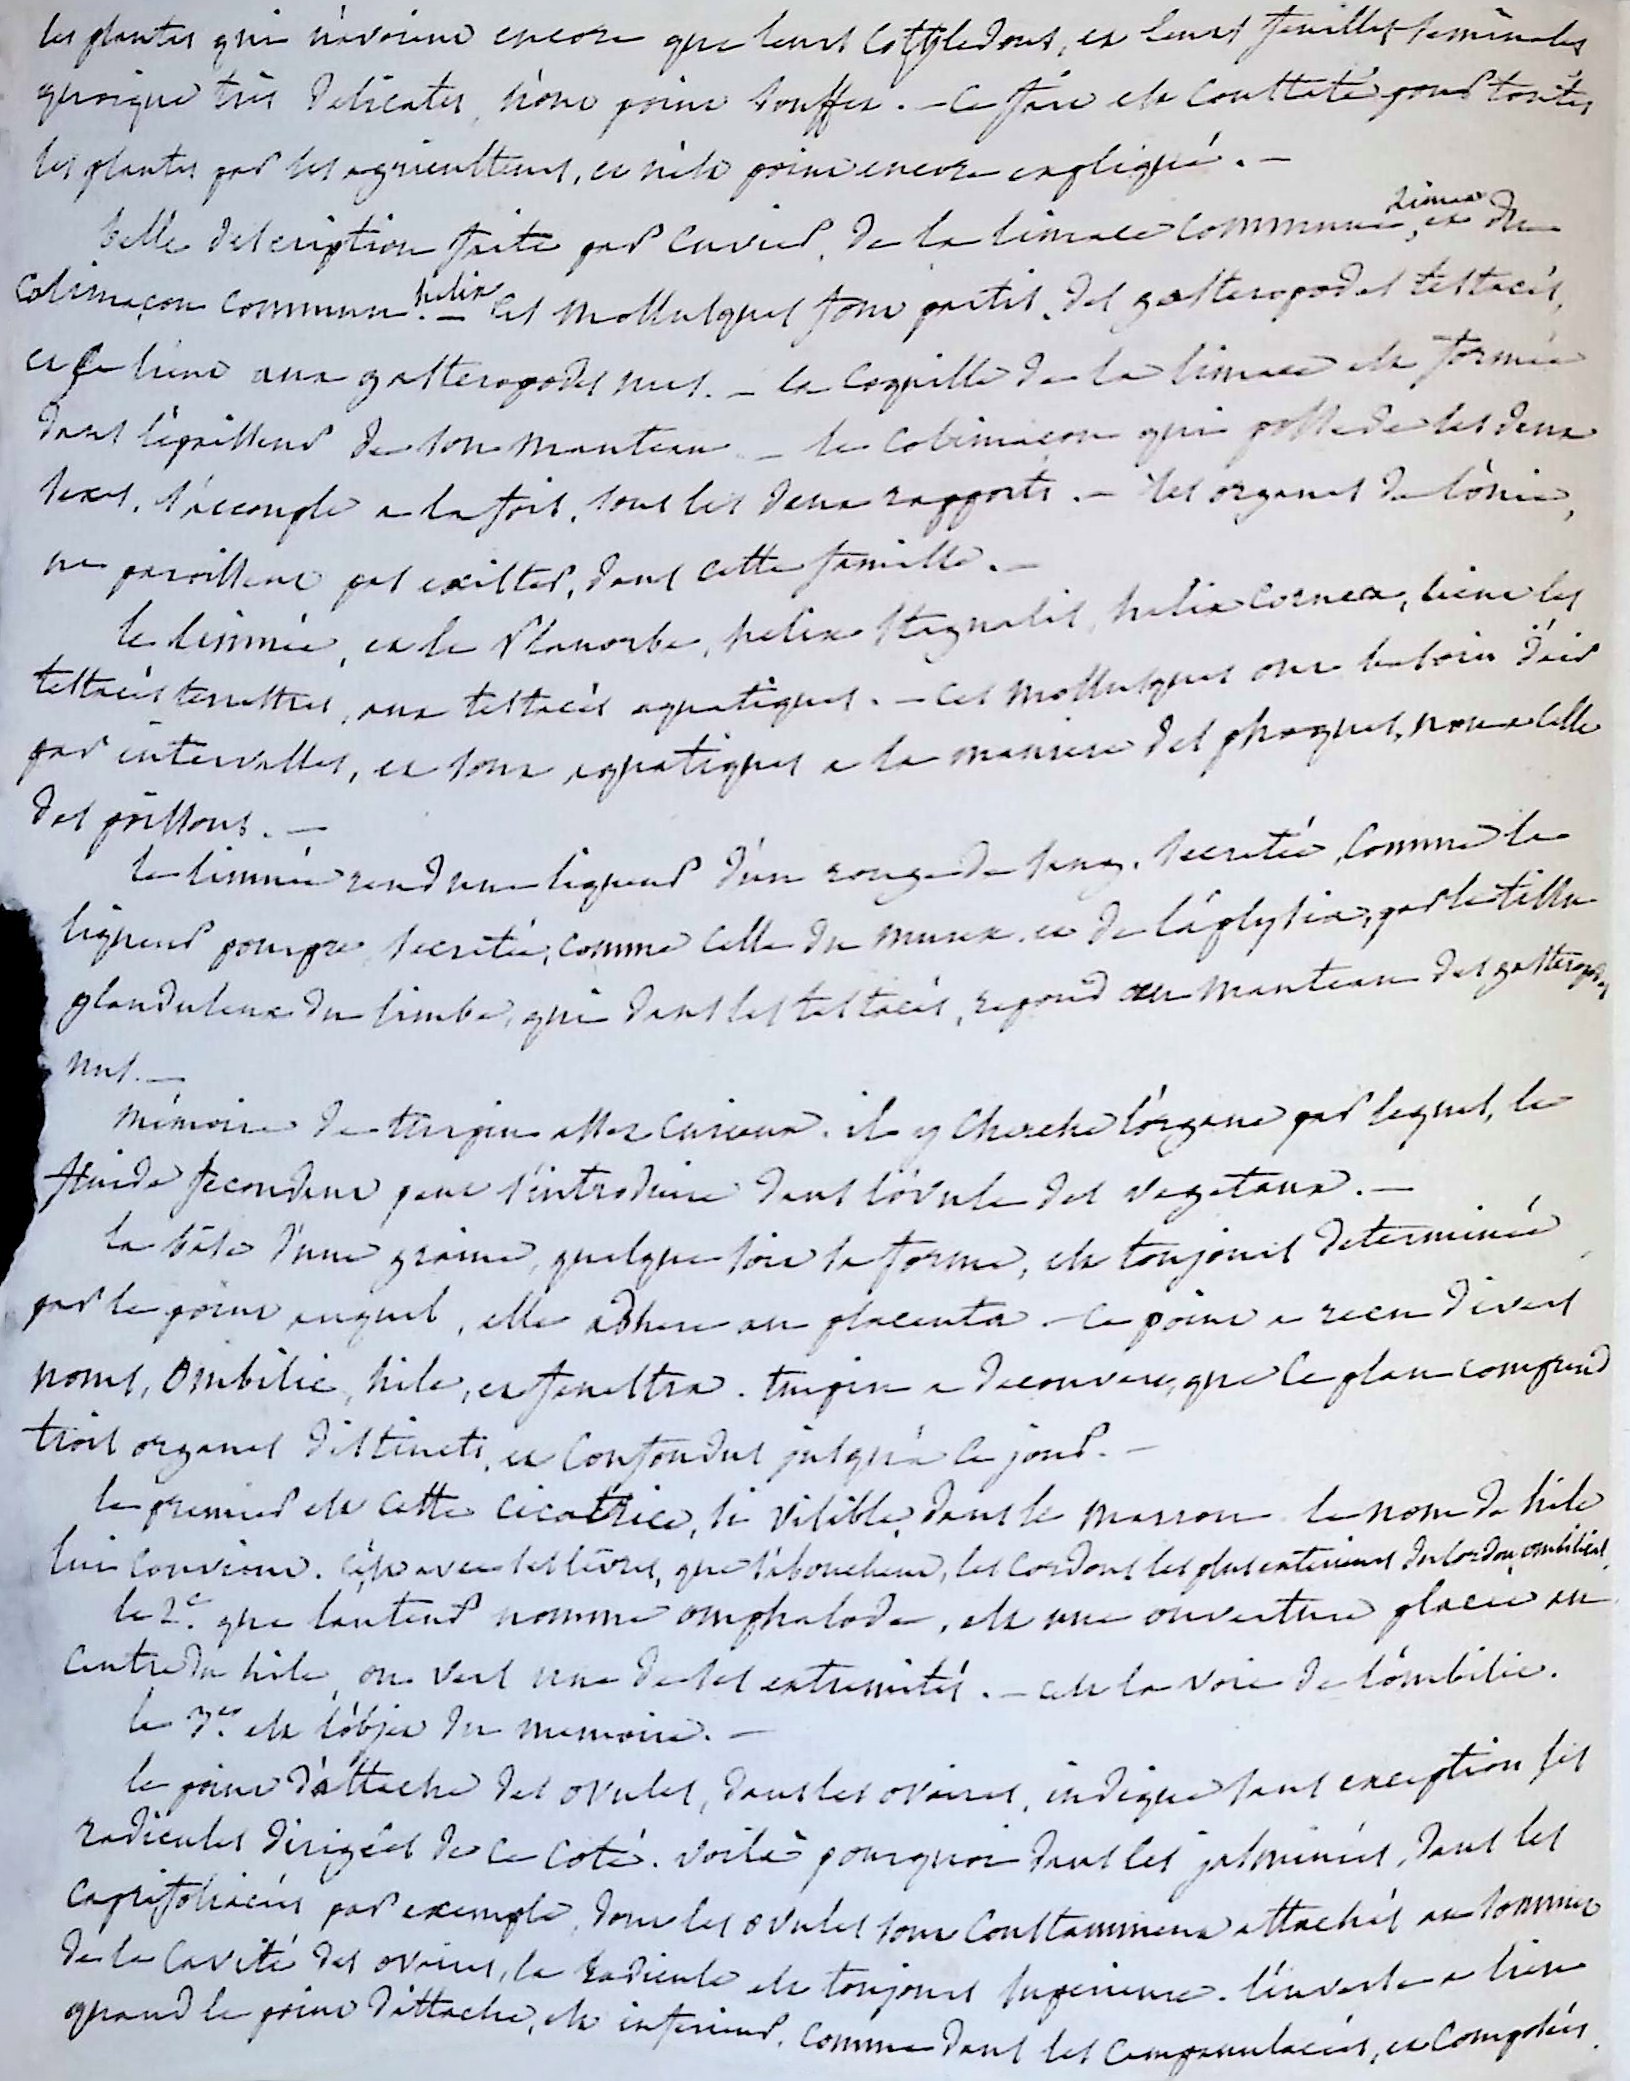 les plantes qui n'avoient encore que leurs cottyledons, et leurs feuilles seminales
quoique très delicates, n'ont point souffert. – ce fait est constaté pour toutes
les plantes par les agriculteurs, et n'est point encore expliqué. –
belle description faite par Cuvier, de la limace commune, limax et du
colimaçon commun. helix – Ces mollusques font partie, des gasteropodes testacés,
et se lient aux gasteropodes nus. – la coquille de la limace est formée
dans l'épaisseur de son manteau – le colimaçon qui possede les deux
sexes, s'accouple a la fois, sous les deux rapports. – les organes de l'ouie,
ne paroissent pas exister, dans cette famille. –
le limnée, et le Planorbe, helix stagnalis, helix cornea, lient les
testacés terrestres, aux testacés aquatiques. – ces mollusques ont besoin d'air
par intervalles, et sont aquatiques a la maniere des phoques, non a celle
des poissons. –
le limnée rend une liqueur d'un rouge de sang, secretée, comme la
liqueur pourpre secretée, comme celle du murex et de l'aplysia, par le tissu
glanduleux du limbe, qui dans les testacés, repond au manteau des gasteropodes
nus. –
Mémoire de turpin assez curieux. il y cherche l'organe par lequel, le
fluide fecondant peut s'introduire dans l'ovule des vegetaux. –
la base d'une graine, quelque soit sa forme, est toujours determinée
par le point auquel, elle adhere au placenta – ce point a recu divers
noms, Ombilic, hile, et fenestra. turpin a decouvert, que ce plan comprend
trois organes distincts, et confondus jusqu'a ce jour. –
le premier est cette cicatrice, si visible, dans le marron le nom de hile
lui convient. c'est avec ses lèvres, que s'abouchent, les cordons les plus exterieurs du cordon ombilical.
le 2e. que l'auteur nomme omphalode, est une ouverture placée au
centre du hile ou vers une de ses extremités. – c'est la voie de l'ombilic.
le 3e. est l'objet du memoire. –
le point d'attache des ovules, dans les ovaires, indique sans exception les
radicules dirigées de ce coté. voilà pourquoi dans les jasminées, dans les
caprifoliacées par exemple, dont les ovules sont constamment attachés au sommet
de la cavité des ovaires, la radicule est toujours superieure. l'inverse a lieu
quand le point d'attache, est inferieur, comme dans les campanulacées, et composées.